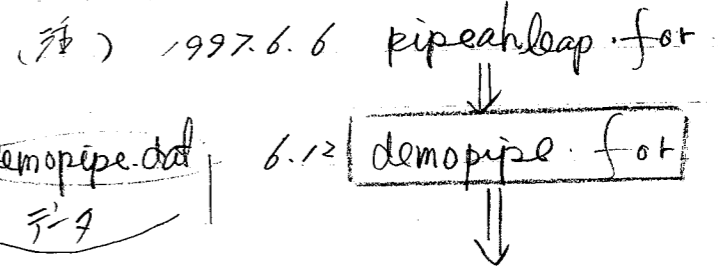 (注) 1997.6.6 pipeahleap.for
⇓
emopipe.dat 6.12 demopipe.for
データ
⇓